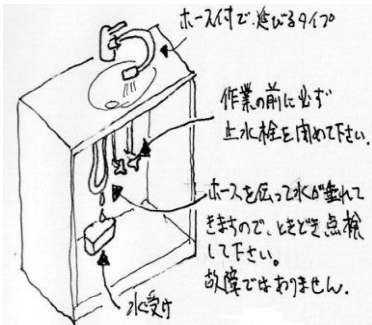 ホース付で、延びるタイプ
作業の前に必ず
止水栓を閉めて下さい。
ホースを伝って水が垂れて
きますので、ときどき点検
して下さい。
故障ではありません。
水受け